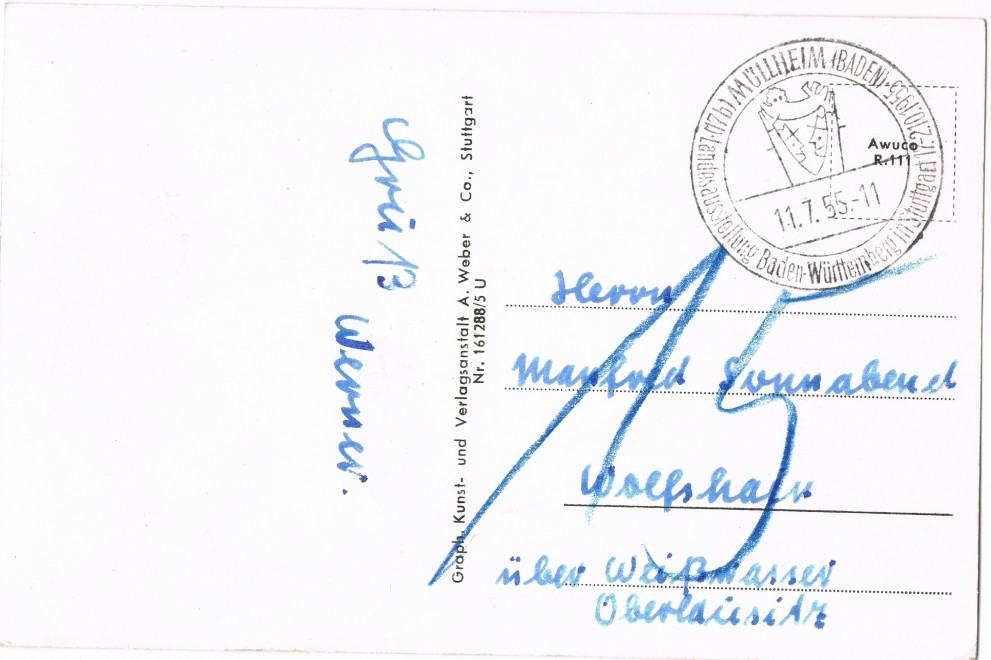 Gruß
Werner.
Graph. Kunst- und Verlagsanstalt A. Weber & Co., Stuttgart
Nr. 161288/5 U
(17a) MÜLLHEIM (BADEN)
Landesausstellung Baden-Württemberg in Stuttgart
11.7.55.-11
Awuco
R.111
15
Herrn
Manfred Sonnabend
Wolfshain
über Weißwasser
Oberlausitz